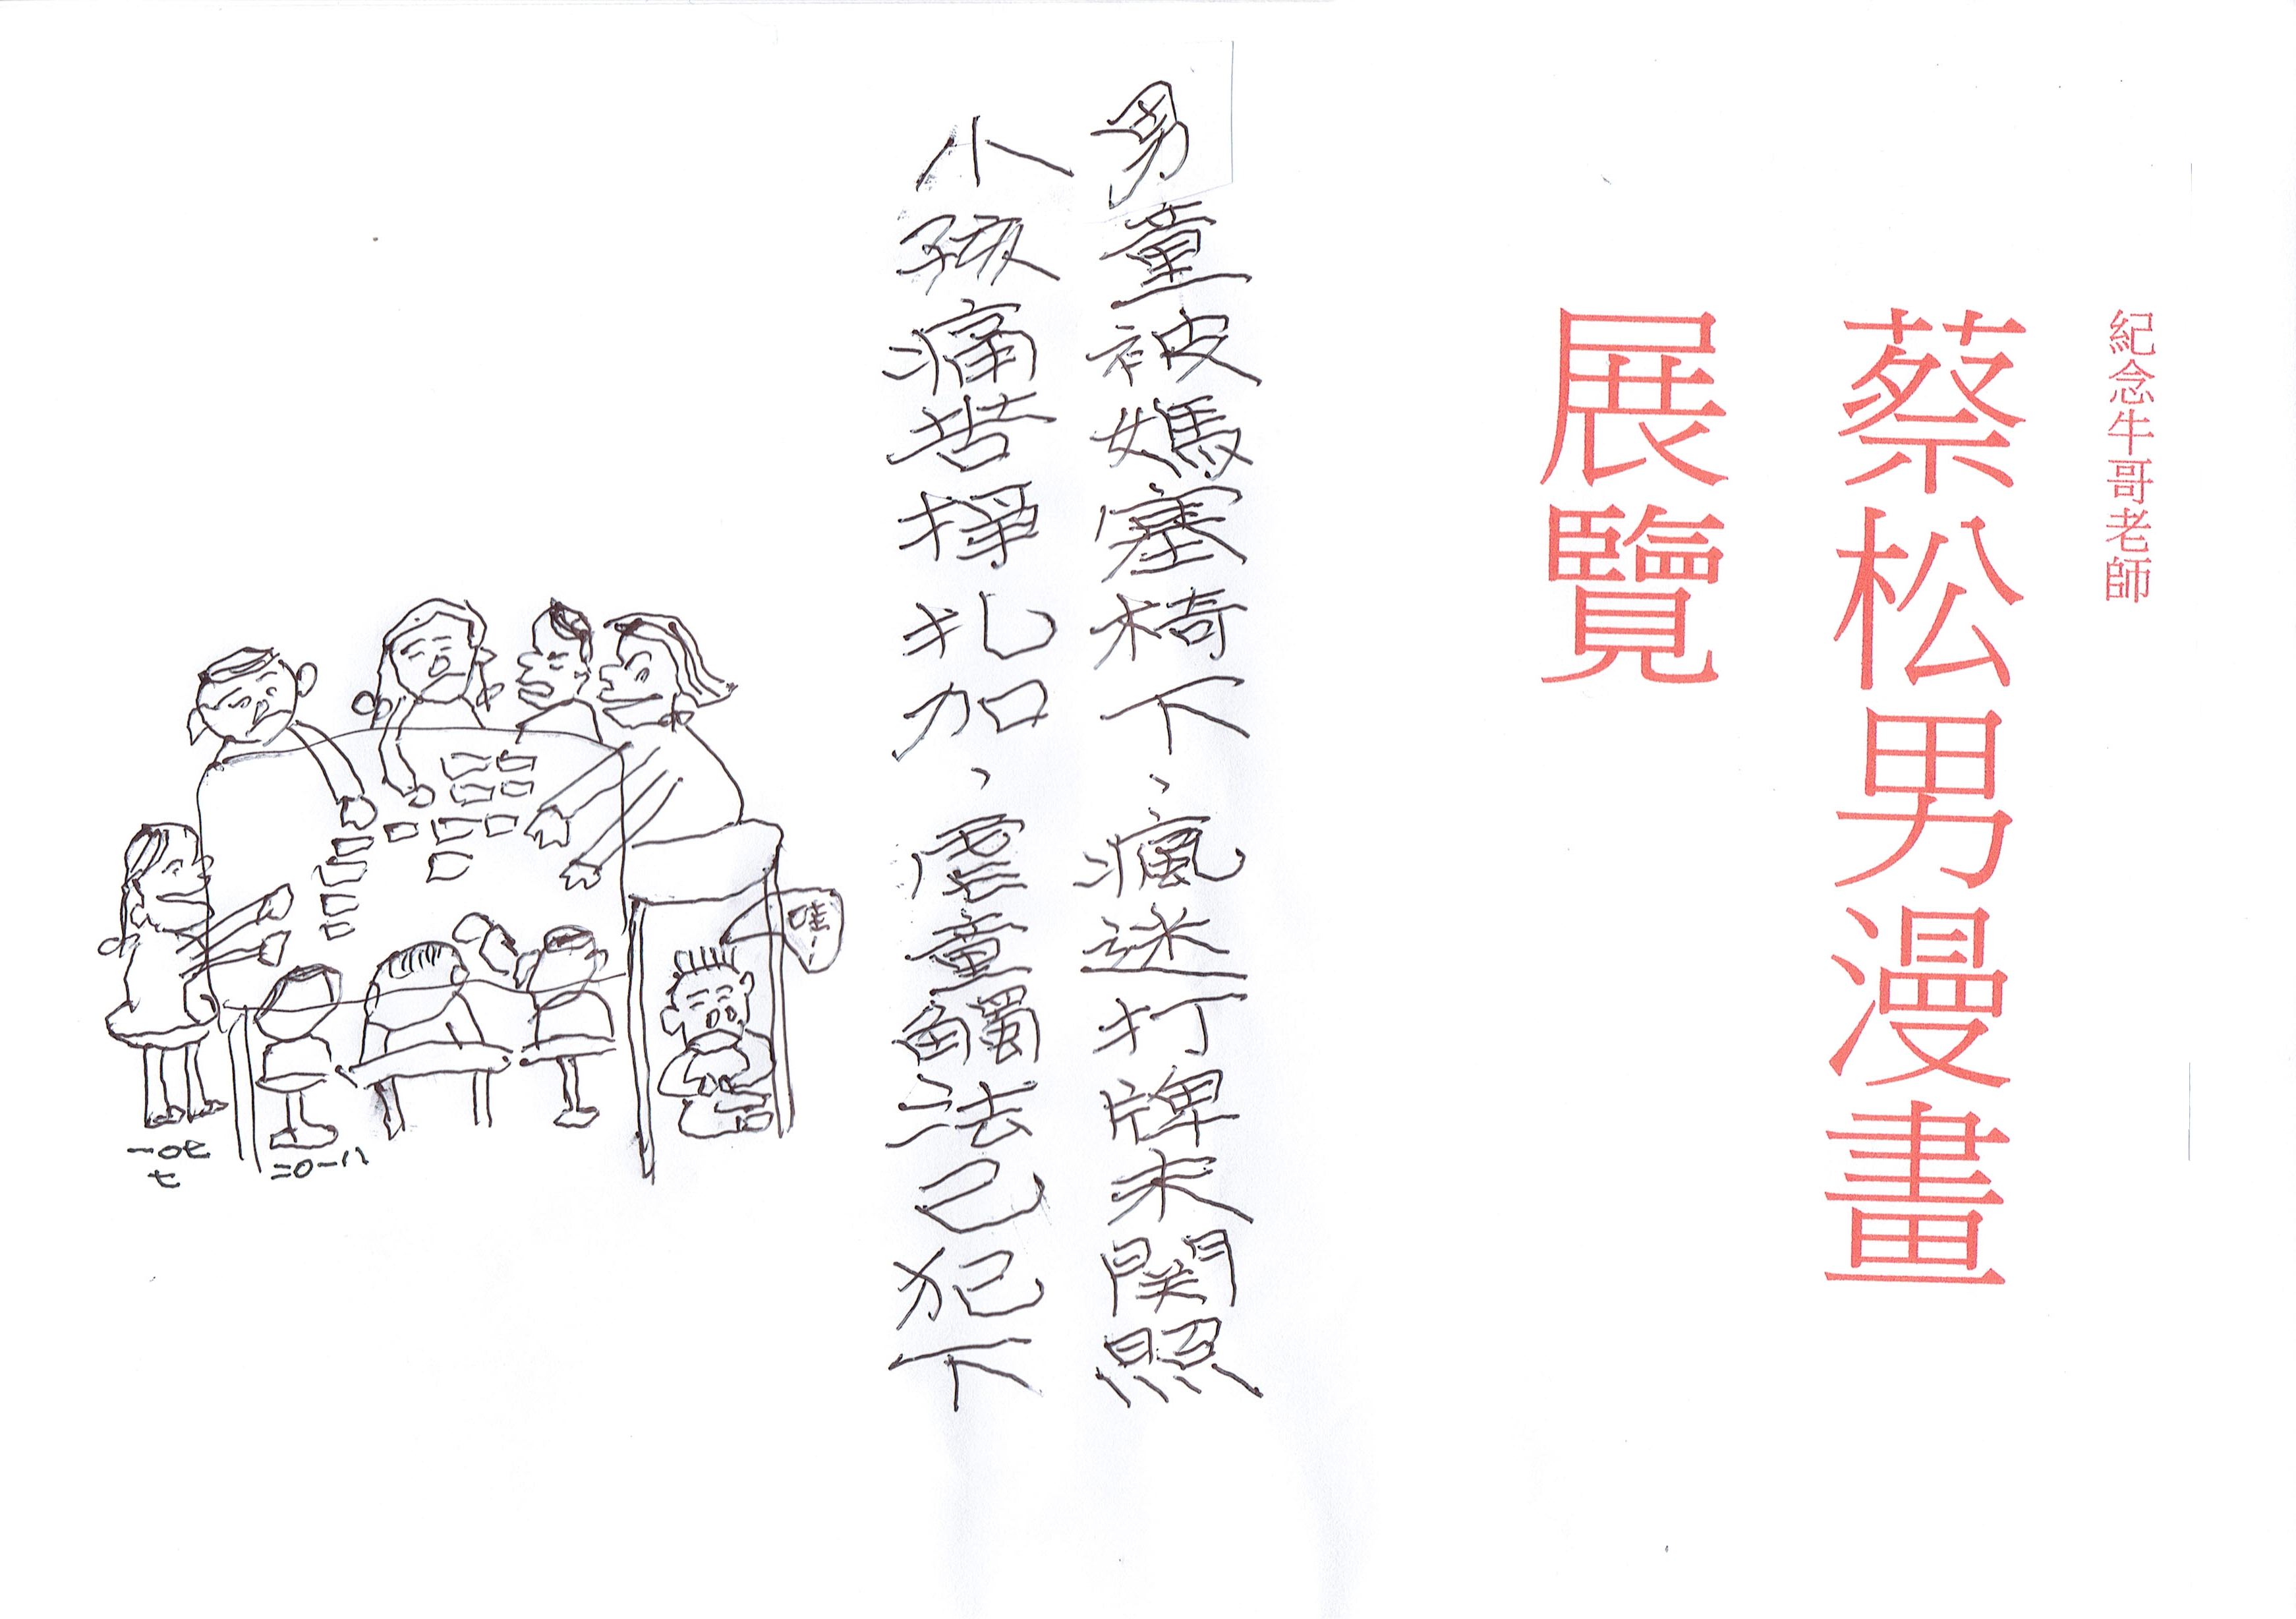 紀念牛哥老師
蔡松男漫畫
展覽
男童被媽塞椅下、瘋迷打牌未関照
小孩痛苦掙扎加、虐童觸法己犯下
哇!
一0七
七
二0一八